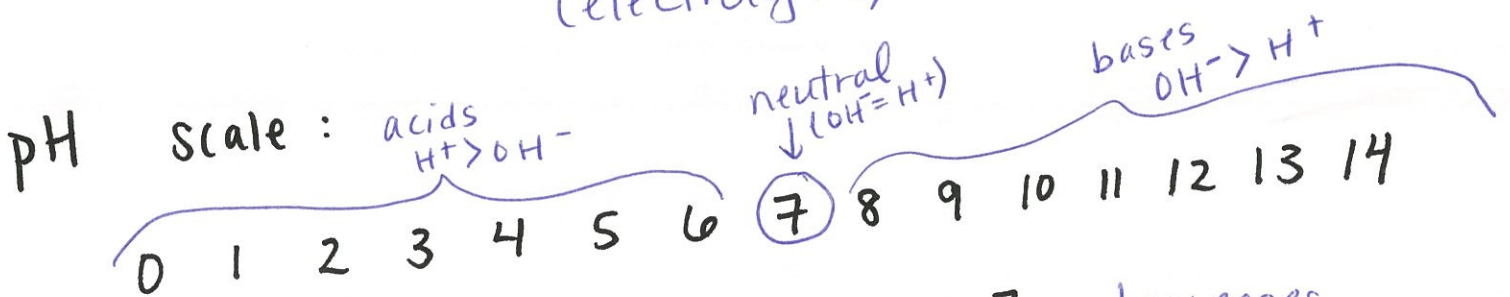 pH scale :
acids
H+ > OH-
neutral
(OH- = H+)
bases
OH- > H+
0 1 2 3 4 5 6 7 8 9 10 11 12 13 14